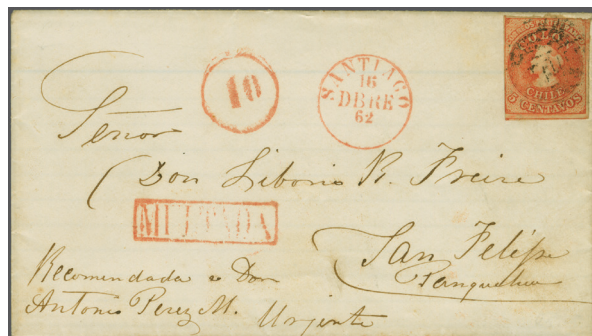 10
SANTIAGO
16
DBRE
62
COLON
CHILE
5 CENTAVOS
Señor
Don Liborio R. Freire
MULTADA
San Felipe
Panquehue
Recomendada a Don
Antonio Perez M.
Urgente